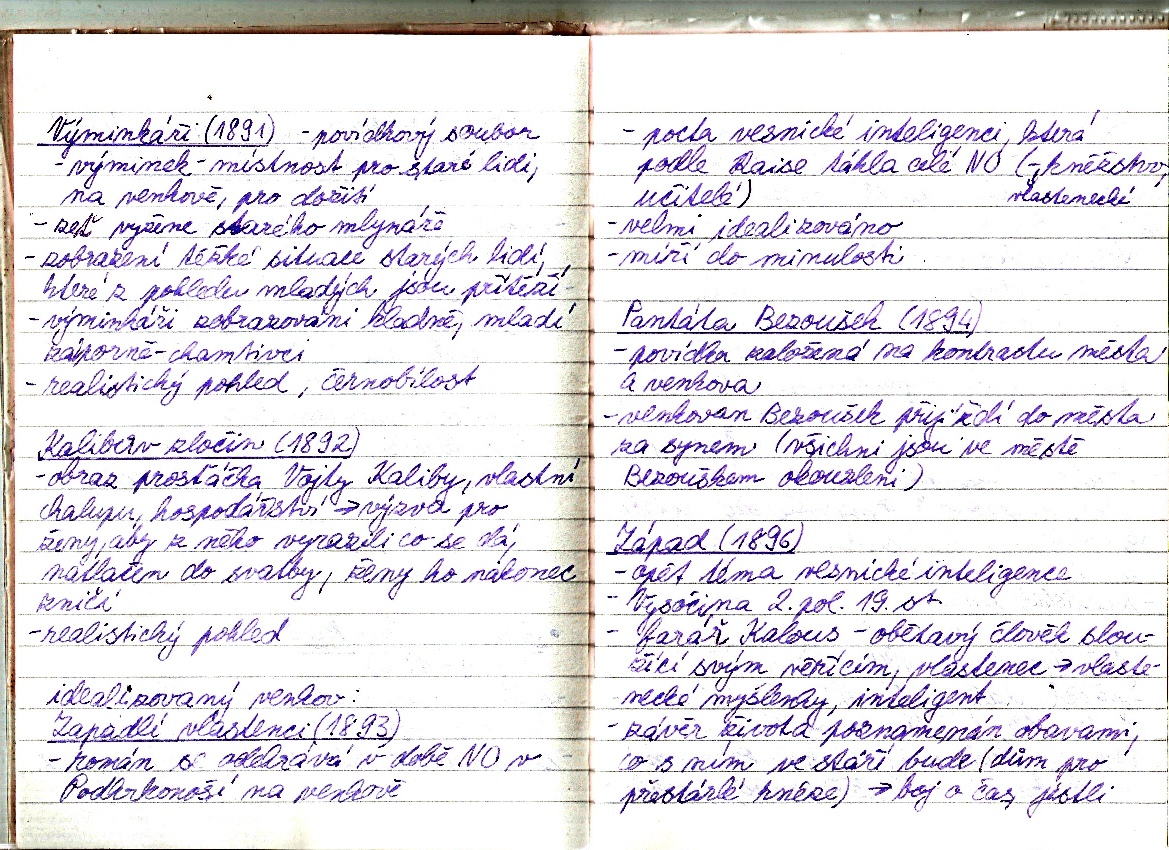 Výminkáři (1891) - povídkový soubor
- výminek - místnost pro staré lidi,
na venkově, pro dožití
- zeť vyžene starého mlynáře
- zobrazení těžké situace starých lidí,
které z pohledu mladých jsou přítěží
- výminkáři zobrazováni kladně, mladí
záporně - chamtivci
- realistický pohled, černobílost
Kalibův zločin (1892)
- obraz prosťáčka Vojty Kaliby, vlastní
chalupu, hospodářství → výzva pro
ženy, aby z něho vyrazili co se dá,
natlačen do svatby, ženy ho nakonec
zničí
- realistický pohled
idealizovaný venkov:
Zapadlí vlastenci (1893)
- román se odehrává v době NO v
Podkrkonoší na venkově
- pocta vesnické inteligenci, která
podle Raise táhla celé NO (- kněžstvo,
učitelé) vlastenecké
- velmi idealizováno
- míří do minulosti
Pantáta Bezoušek (1894)
- povídka založená na kontrastu města
a venkova
- venkovan Bezoušek přijíždí do města
za synem (všichni jsou ve městě
Bezouškem okouzleni)
Západ (1896)
- opět téma vesnické inteligence
- Vysočina 2. pol. 19. st.
- farář Kalous - obětavý člověk slou-
žící svým věřícím, vlastenec → vlaste-
necké myšlenky, inteligent
- závěr života poznamenán obavami,
co s ním ve stáří bude (dům pro
přestárlé kněze) → boj o čas, jestli